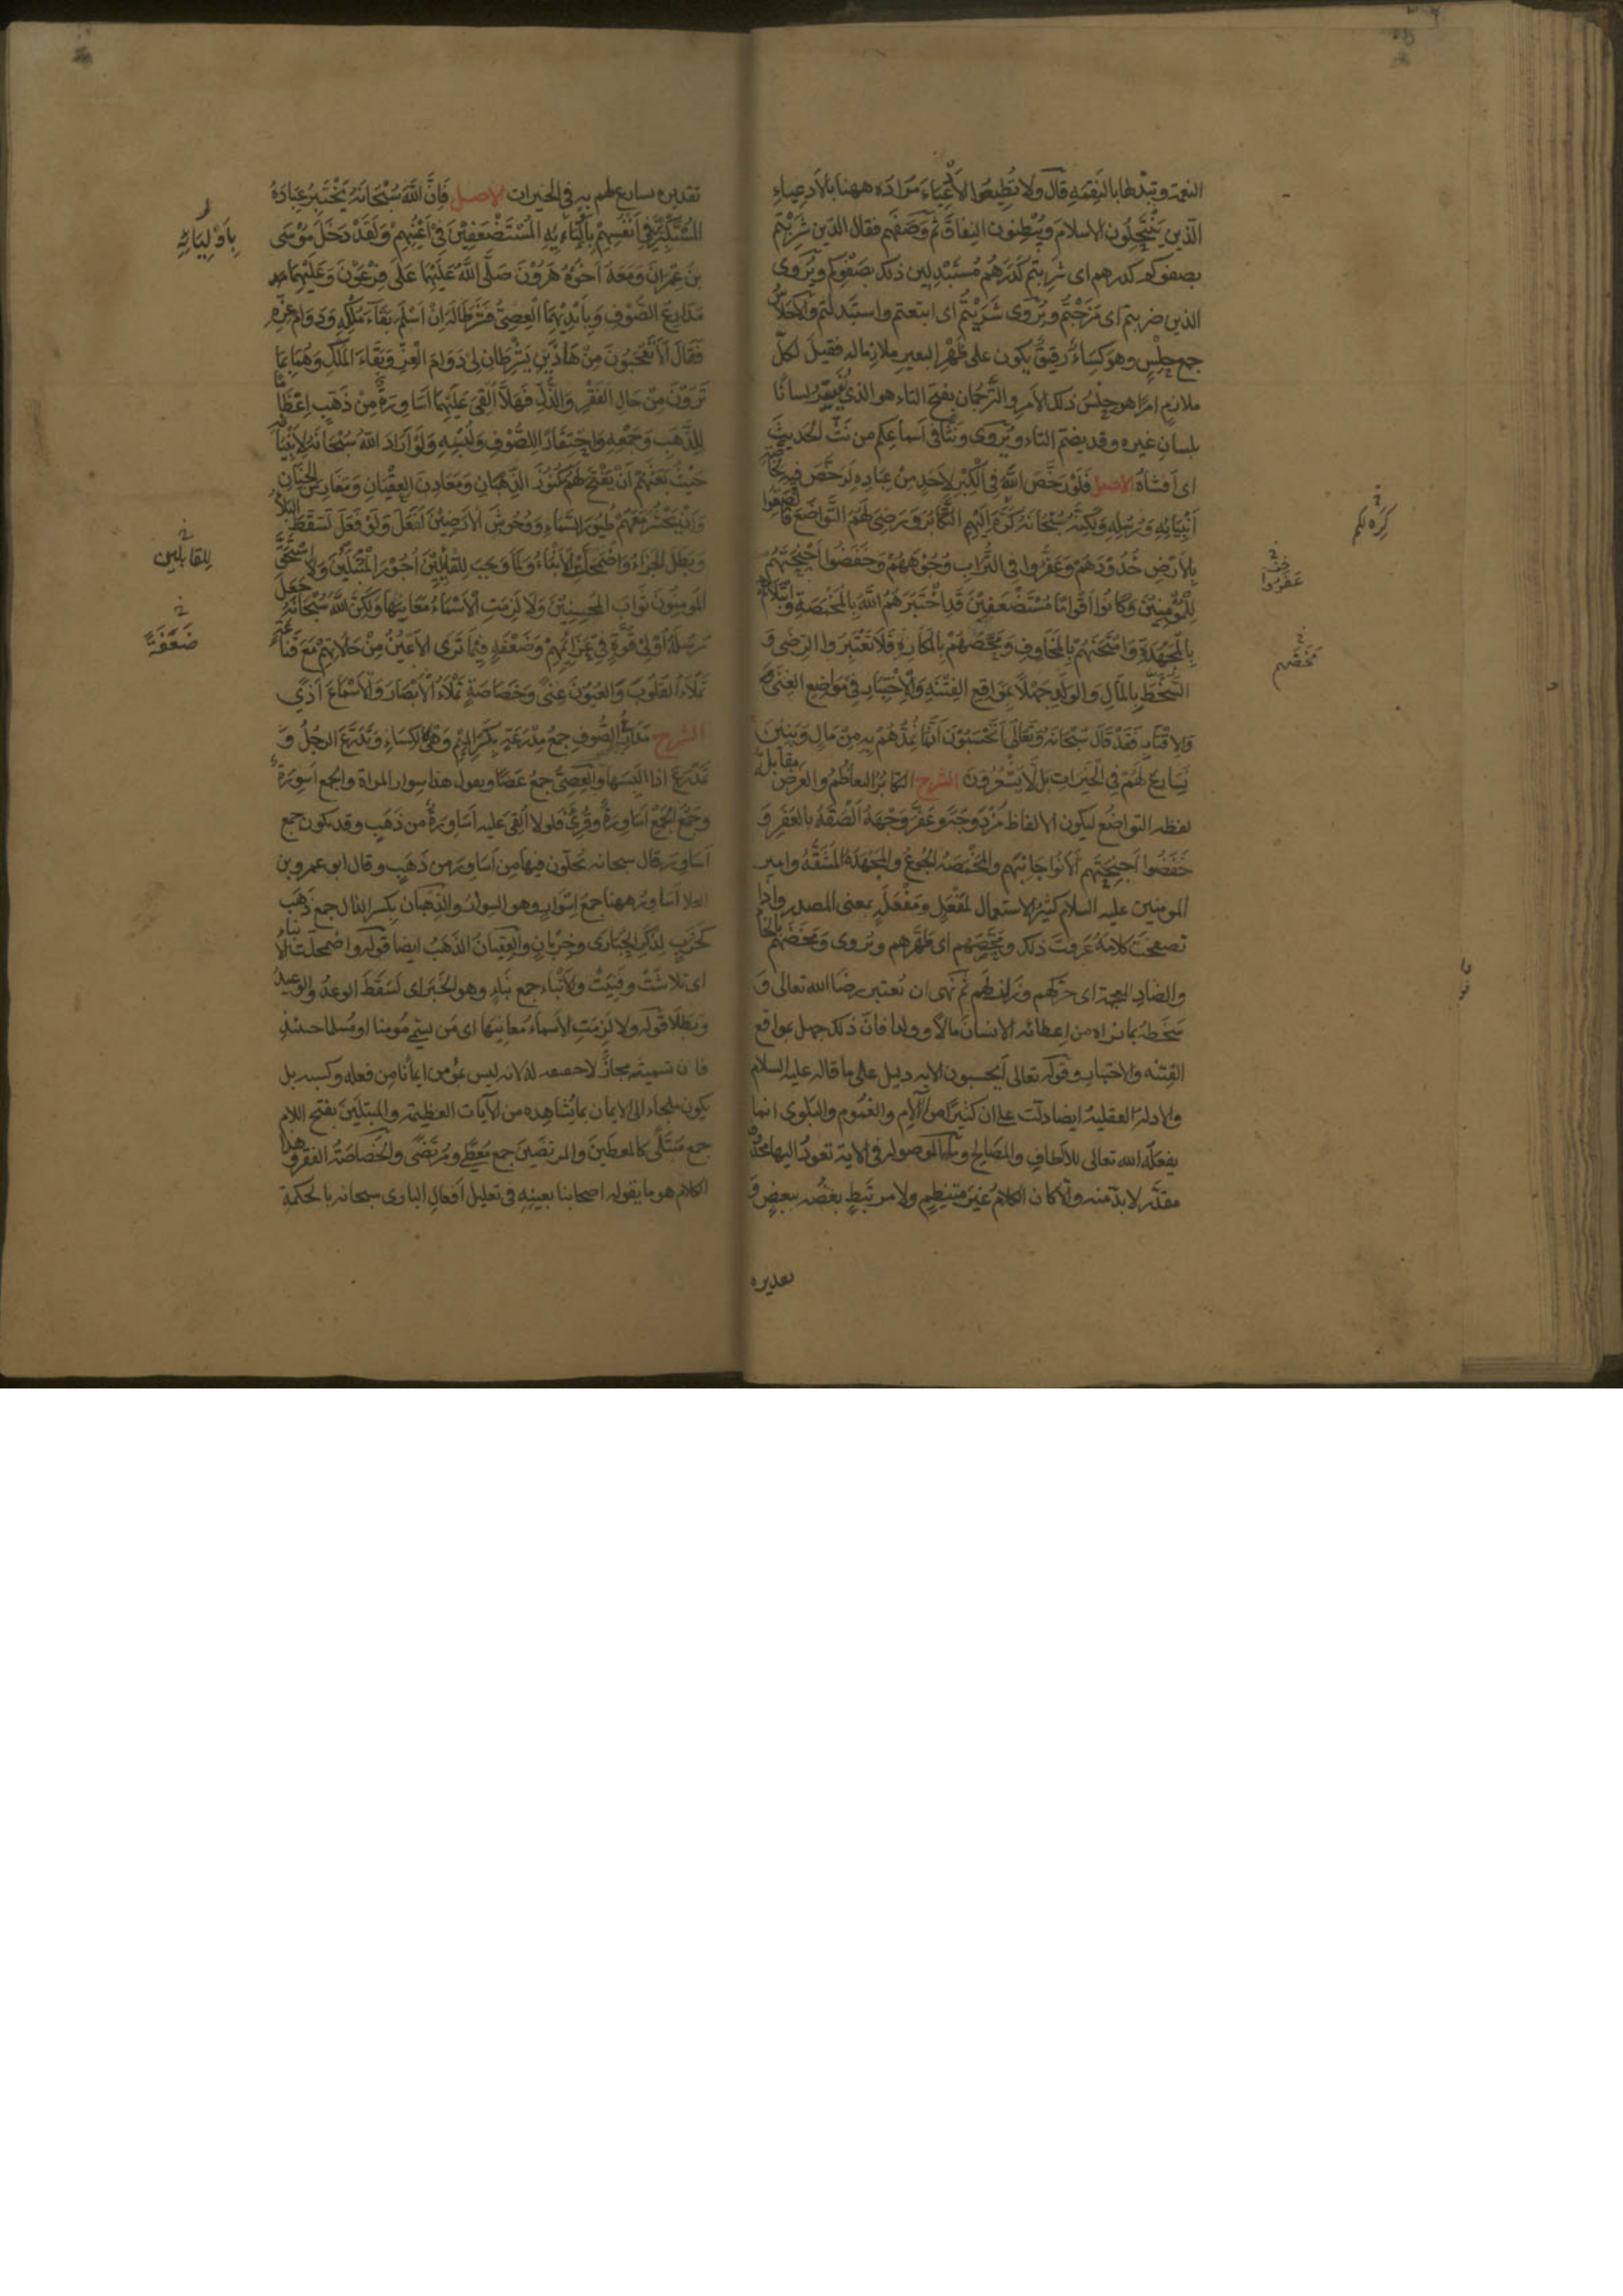 النعمة وتبدلها بالنقمة قال ولا تطيعوا الأدعياء مراده ههنا بالأدعياء
الذين ينتحلون الإسلام ويبطنون النفاق ثم وصفهم فقال الذين شربتم
بصفوكم كدرهم اى شربتم كدرهم مستبدلين ذلك بصفوكم ويروى
الذين ضربتم اى مزجتم ويروى شريتم اى ابتعتم واستبدلتم والاحلاس
جمع حلس وهو كساء رقيق يكون على ظهر البعير ملازما له فقيل لكل
ملازم امرا هو حلس ذلك الامر والترجمان بفتح التاء هو الذى يفسر لسانا
بلسان غيره وقد يضم التاء ويروى ونثا فى اسماعكم من نث الحديث
اى افشاه الاصل فلو رخص الله فى الكبر لاحد من عباده لرخص فيه لخاصة
انبيائه ورسله ولكنه سبحانه كره اليهم التكابر ورضى لهم التواضع فالصقوا
بالارض خدودهم وعفروا فى التراب وجوههم وخفضوا اجنحتهم
للمؤمنين وكانوا اقواما مستضعفين قد اختبرهم الله بالمخمصة وابتلاهم
بالمجهدة وامتحنهم بالمخاوف ومحصهم بالمكاره فلا تعتبروا الرضى و
السخط بالمال والولد جهلا بمواقع الفتنة والاختبار فى مواضع الغنى
والاقتار فقد قال سبحانه وتعالى ايحسبون انما نمدهم به من مال وبنين
نسارع لهم فى الخيرات بل لا يشعرون الشرح التكابر التعاظم والغرض مقابلة
لفظه التواضع ليكون الالفاظ مزدوجة وعفر وجهه الصقه بالعفر و
خفضوا اجنحتهم الانوا جانبهم والمخمصة الجوع والمجهدة المشقة وامير
المومنين عليه السلام كثير الاستعمال لمفعل ومفعلة بمعنى المصدر واذا
تصفحت كلامه عرفت ذلك ومحصهم اى طهرهم ويروى ومخضهم بالخا
والضاد المعجمة اى حركهم وزلزلهم ثم نهى ان نعتبر رضا الله تعالى و
سخطه بما نراه من اعطائه الانسان مالا وولدا فان ذلك جهل بمواقع
الفتنه والاختبار وقوله تعالى ايحسبون الايه دليل على ما قاله عليه السلام
والادلة العقلية ايضا دلت على ان كثيرا من الالام والغموم والبلوى انما
يفعله الله تعالى للالطاف والمصالح وما الموصولة فى الاية تعود اليها محذوف
مقدر لا بد منه والا كان الكلام غير منتظم ولا مرتبط بعضه ببعض و
تقديره
كره لكم
عفروا
مخضهم
تقديره نسارع لهم به فى الخيرات الاصل فان الله سبحانه يختبر عباده
المستكبرين فى انفسهم باوليائه المستضعفين فى اعينهم ولقد دخل موسى
بن عمران ومعه اخوه هرون صلى الله عليهما على فرعون وعليهما
مدارع الصوف وبايديهما العصى فشرطا له ان اسلم بقاء ملكه ودوام عزه
فقال الا تعجبون من هذين يشرطان لى دوام العز وبقاء الملك وهما بما
ترون من حال الفقر والذل فهلا القى عليهما اساورة من ذهب اعظاما
للذهب وجمعه واحتقارا للصوف ولبسه ولو اراد الله سبحانه لانبيائه
حيث بعثهم ان يفتح لهم كنوز الذهبان ومعادن العقيان ومغارس الجنان
وان يحشر معهم طيور السماء ووحوش الارضين لفعل ولو فعل لسقط البلاء
وبطل الجزاء واضمحلت الانباء ولما وجب للقابلين اجور المبتلين ولا استحق
المومنون ثواب المحسنين ولا لزمت الاسماء معانيها ولكن الله سبحانه جعل
رسله اولى قوة فى عزائمهم وضعفة فيما ترى الاعين من حالاتهم مع قناعة
تملاء القلوب والعيون غنى وخصاصة تملاء الابصار والاسماع اذى
الشرح مدارع الصوف جمع مدرعة بكسر الميم وهى كالكساء وتدرع الرجل و
تمدرع اذا لبسها والعصى جمع عصا ويقول هذا سوار المراة والجمع اسورة
وجمع الجمع اساورة وقرئ فلولا القى عليه اساورة من ذهب وقد يكون جمع
اساور قال سبحانه يحلون فيها من اساور من ذهب وقال ابو عمرو بن
العلا اساور ههنا جمع اسوار وهو السوار والذهبان بكسر الذال جمع ذهب
كخرب لذكر الحبارى وخربان والعقيان الذهب ايضا قوله واضمحلت الانباء
اى تلاشت وفنيت والانباء جمع نباء وهو الخبر اى لسقط الوعد والوعيد
وبطلا قوله ولا لزمت الاسماء معانيها اى من يسمى مومنا او مسلما حينئذ
فان تسميته مجاز لا حقيقه لانه ليس بمومن ايمانا من فعله وكسبه بل
يكون ملجاء الى الايمان بما يشاهده من الآيات العظيمة والمبتلين بفتح اللام
جمع مبتلى كالمعطين والمرتضين جمع معطى ومرتضى والخصاصة الفقر وهذا
الكلام هو ما يقوله اصحابنا بعينه فى تعليل افعال البارى سبحانه بالحكمة
باوليائه
للقابلين
ضعفة